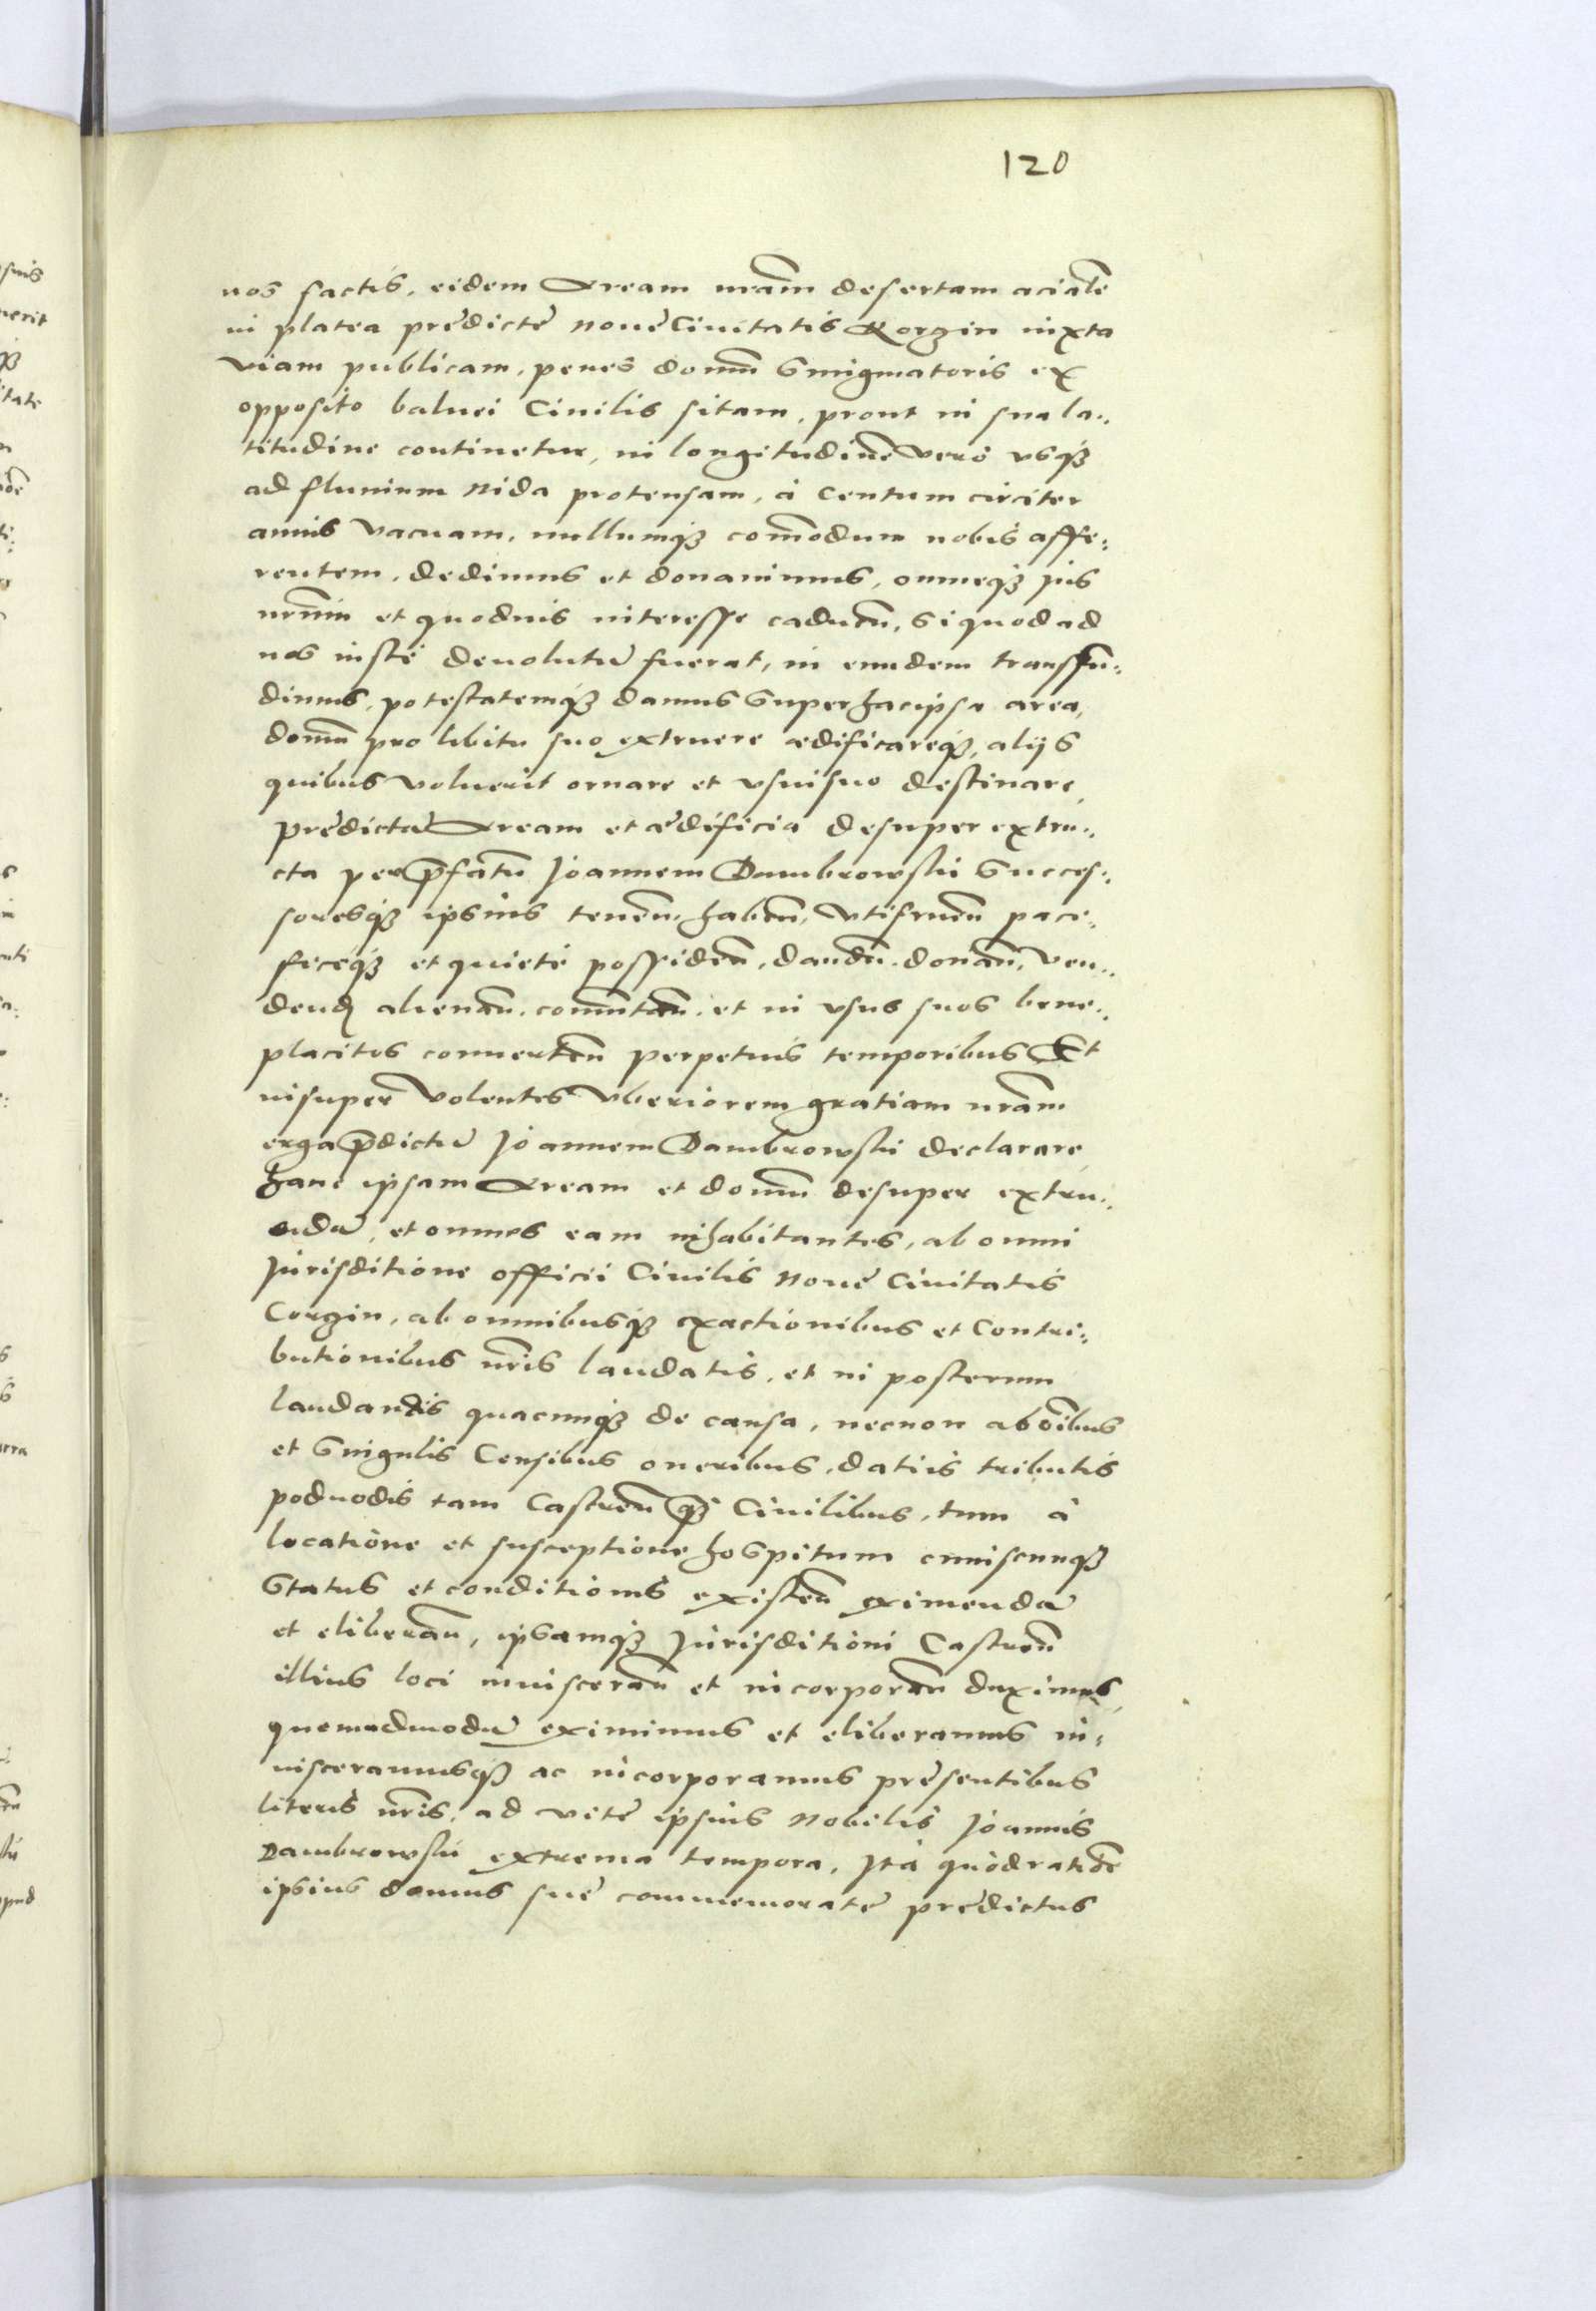 120
nos factis, eidem Aream nr̃am desertam acialẽ
in platea predicte noue Ciuitatis Korzin iuxta
viam publicam, penes domũ Smigmatoris ex
opposito balnei Ciuilis sitam, prout in sua la-
titudine continetur, in longitudinẽ vero vsq3
ad fluuium Nida protensam, à centum circiter
annis vacuam, nullumq3 com̃odum nobis affe-
rentem, dedimus et donauimus, omneq3 jus
nr̃um et quoduis interesse caducũ, si quod ad
nos iuste deuolutũ fuerat, in eundem transfu-
dimus, potestatemq3 damus super hac ipsa area,
domũ pro libitu suo extruere ædificareq3, alijs
quibus voluerit ornare et vsui suo destinare,
predictã Aream et ædificia desuper extru-
cta per p̃fatũ Joannem Dambrowski Succes-
soresq3 ipsius tenen̄. haben̄, vtifruen̄ paci-
ficeq3 et quiete possiden̄, dandn̄. donan̄, ven-
dend̄ alienan̄. com̃utan̄. et in vsus suos bene-
placitos conuerten̄ perpetuis temporibus Et
insuper volentes vberiorem gratiam nr̃am
erga p̃dictũ Joannem Dambrowski declarare,
hanc ipsam Aream et domũ desuper extru-
endã, et omnes eam inhabitantes, ab omni
Jurisditione officii Ciuilis Noue Ciuitatis
Corzin, ab omnibusq3 exactionibus et Contri-
butionibus nr̃is laudatis, et in posterum
laudandis quacunq3 de causa, necnon ab oĩbus
et Singulis Censibus oneribus, datiis tributis
podwodis tam Castren̄ q̃3 Ciuilibus, tum à
locatione et susceptione hospitum cuiuscunq3
Status et conditionis existen̄ eximendã
et eliberan̄, ipsamq3 Jurisditioni Castren̄
illius loci inuisceran̄ et incorporan̄ duximus,
quemadmodũ eximimus et eliberamus in-
uisceramusq3 ac incorporamus presentibus
literis nr̃is, ad vite ipsius Nobilis Joannis
Dambrowski extrema tempora, Ità quod ratiõe
ipsius domus sue commemorate predictus